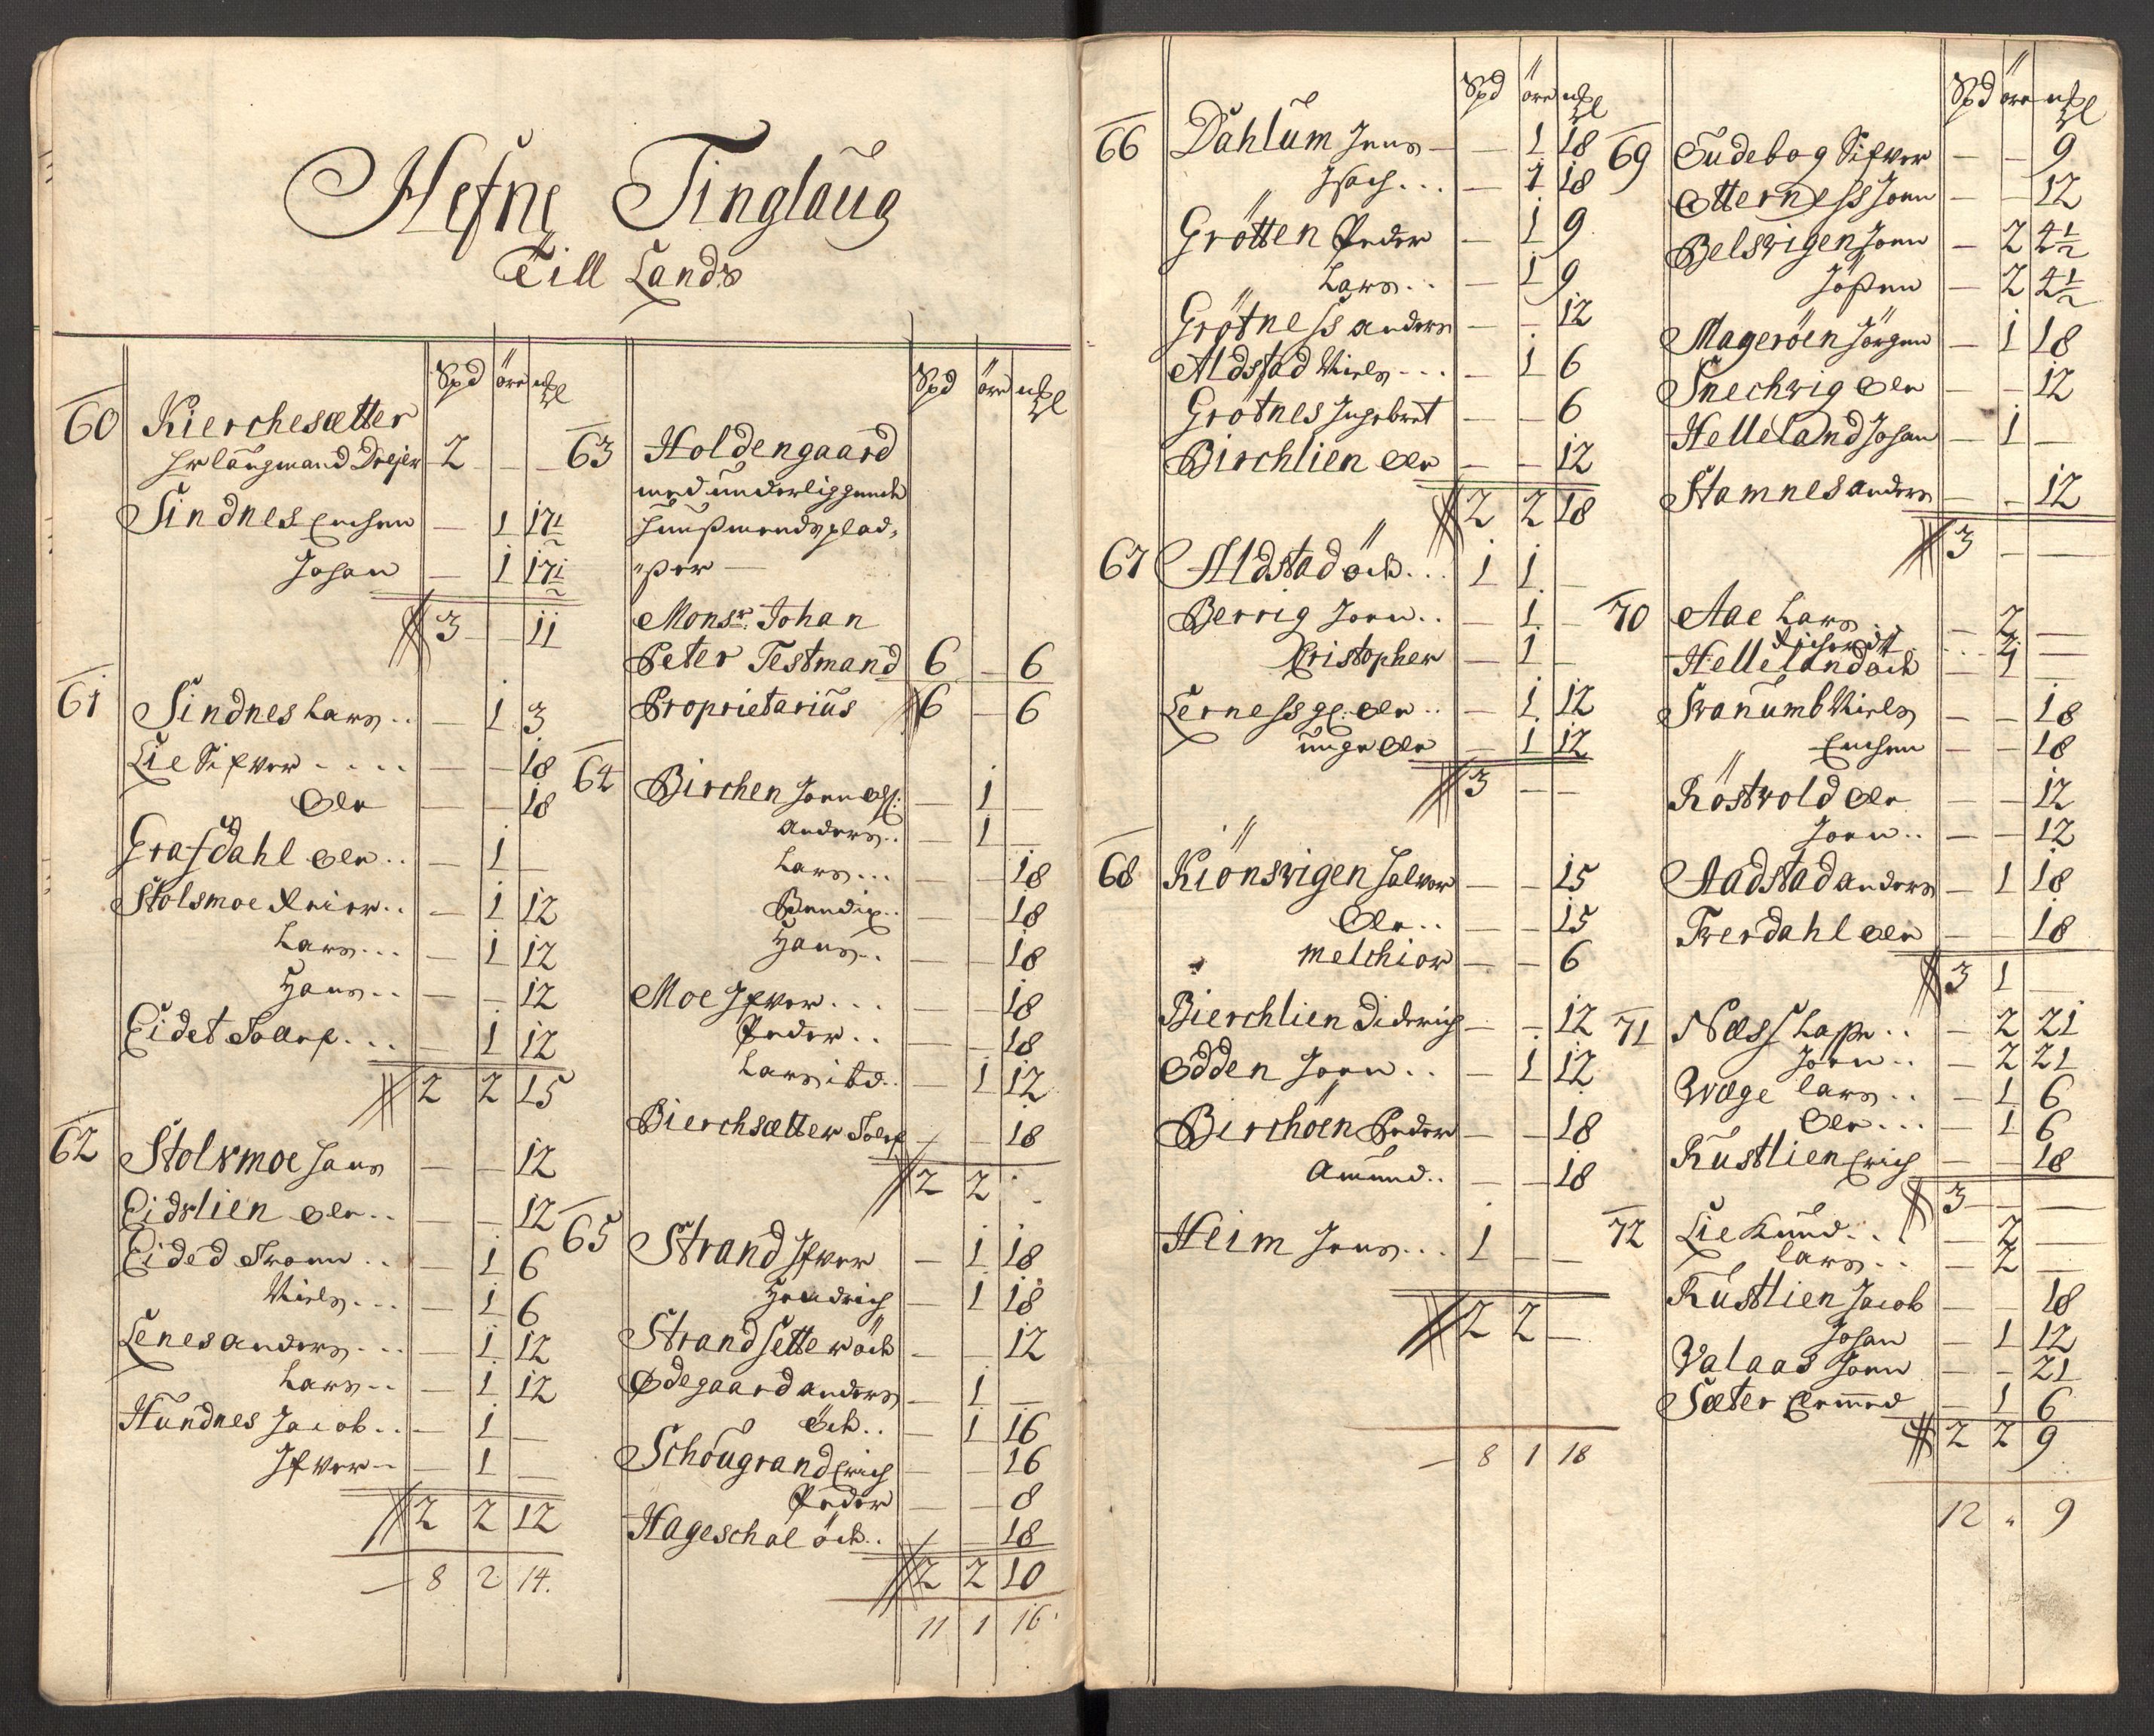 Hefne Tinglaug
Till Lands
Spd öre mkl
60 Kierchesætter
Hr laugmand Drejer 2 — —
Sindnes Ensen — 1 17½
Johan — 1 17½
3 — 11
61 Sindnes Lars .. — 1 3
Lie Sifver .... — — 18
Ole — — 18
Grafdahl Ole .. — 1 —
Stolsmoe Reier .. — 1 12
Lars ... — 1 12
Hans .. — — 12
Eidet Tollef ... — 1 12
2 2 15
62 Stolsmoe Hans — — 12
Eidslien Ole .. — — 12
Eided Svenn .. — 1 6
Niels ... — 1 6
Lenes Anders ... — 1 12
Lars .. — 1 12
Hundnes Jacob .. — 1 —
Ifver .. — 1 —
2 2 12
— 8 2 14.
Spd öre mkl
63 Holdengaard
med underliggende
Huusmends plad,
"ser —
Monsr. Johan
Peter Testmand 6 — 6
Proprietarius 6 — 6
64 Birchen Joen Ols: — 1 —
Anders .. — 1 —
Lars ... — — 18
Bendix .. — — 18
Hans .. — — 18
Moe Ifver ... — — 18
Peder .. — — 18
Lars ibd. — 1 12
Bierchsætter Tollef — — 18
2 2 —
65 Strand Ifver — 1 18
Hendrich — 1 18
Strand Setter öde — — 12
Ødegaard Anders — 1 —
Öde .. — 1 16
Schougrand Erich — — 16
Peder — — 8
Hageschal öde .. — — 18
2 2 10
11 1 16
Spd öre mkl
66 Dahlum Jens — — 1 18
Isach ... — 1 18
Grötten Peder — 1 9
Lars .. — 1 9
Grötness Anders — — 12
Aldstad Niels ... — 1 6
Grötnes Ingebret — — 6
Birchlien Ole — — 12
2 2 18
67 Aldstad öde ... 1 1 —
Berrig Joen .. — 1 —
Cristopher — 1 —
Lerness gl: Ole .. — 1 12
unge Ole — 1 12
3 — —
68 Kiönsvigen Halvor — — 15
Ole .. — — 15
Melchior — — 6
Bierchlien Diderich — — 12
Odden Joen .. — 1 12
Birchöen Peder — — 18
Amund .. — — 18
Heim Jens ... 1 — —
2 2 —
— 8 1 18
Spd öre mkl
69 Gudebog Sifver — — 9
Otterness Joen — — 12
Belsvigen Joen — 2 4½
Jössen — 2 4½
Mageröen Jörgen — 1 18
Snechvig Ole — — 12
Helleland Johan — 1 —
Stamnes Anders — — 12
3 — —
70 Aae Lars — 2 —
Richardt ... 2 —
Helleland öde — 1 —
Svanumb Niels — — 18
Ensen — — 18
Röstvold Ole — — 12
Joen .. — — 12
Aadstad Anders — 1 18
Sverdahl Ole — — 18
3 1 —
71 Næss Lasse .. — 2 21
Joen .. — 2 21
Wæge Lars .. — 1 6
Ole ... — 1 6
Rustlien Erich — — 18
3 — —
72 Lie Knud .. — 2 —
Lars .. — 2 —
Rustlien Jacob — — 18
Johan — 1 12
Valaas Joen — — 21
Sæter Clemmed — 1 6
2 2 9
12 " 9